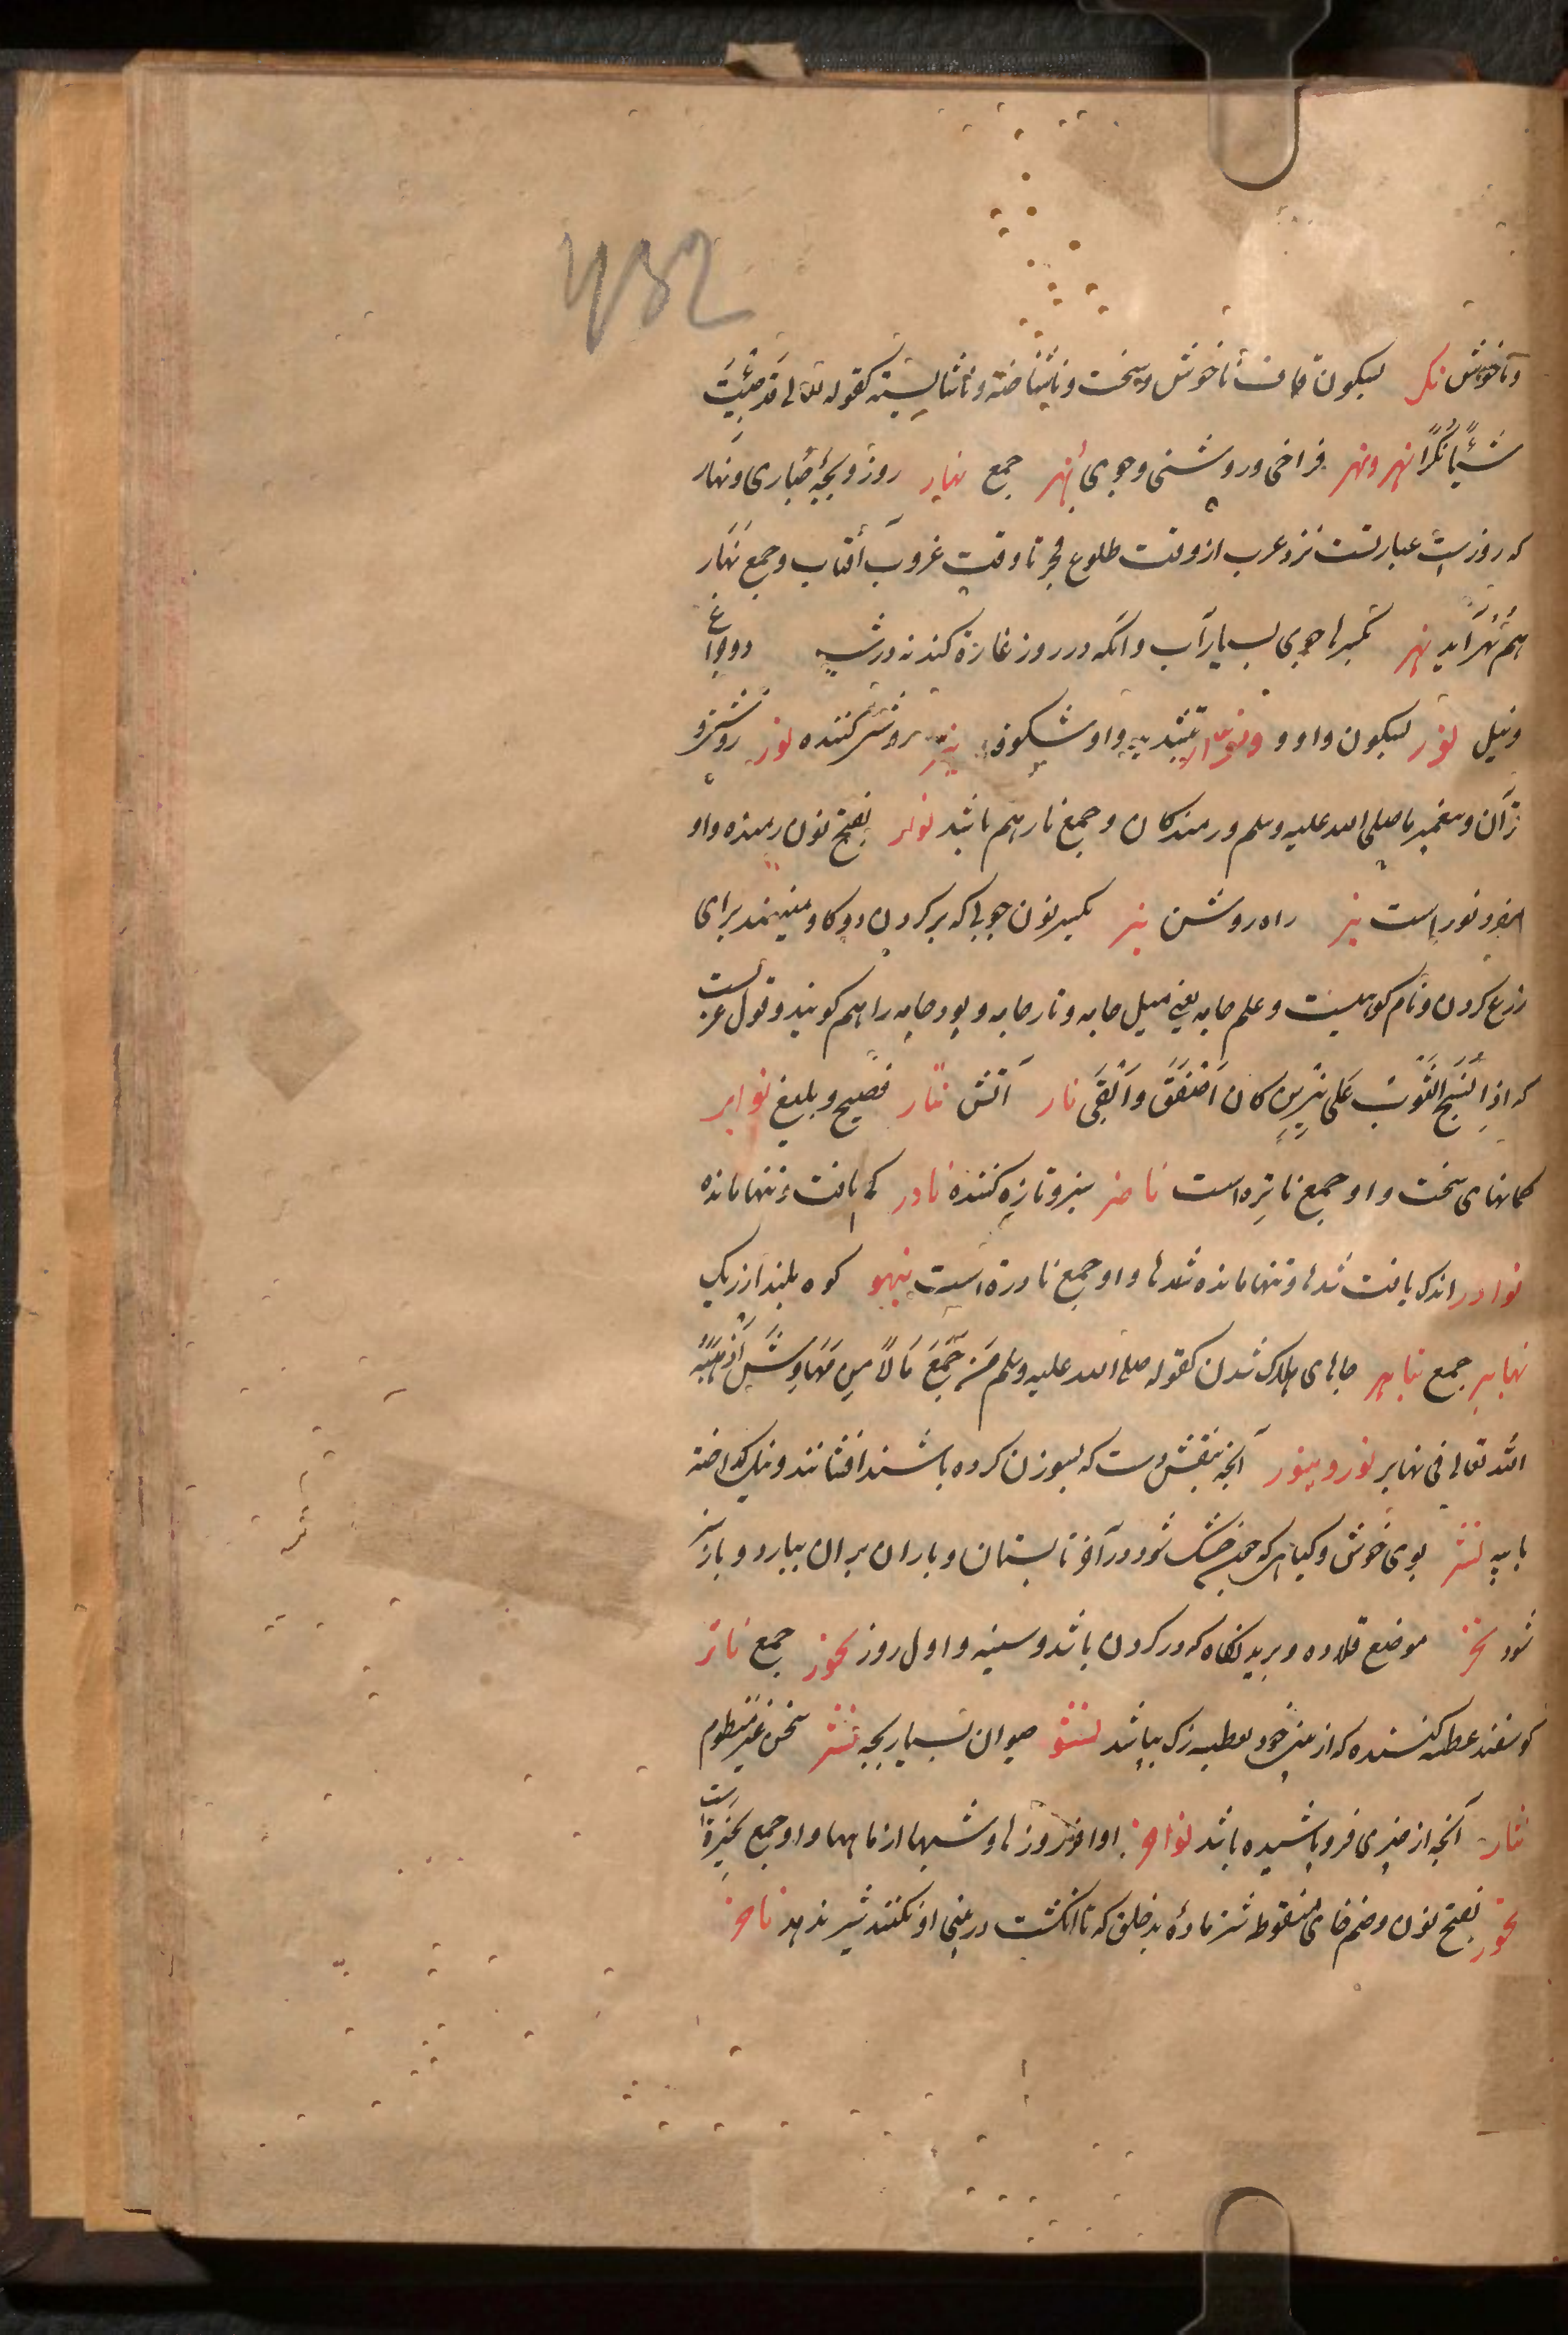 432
وناخوش نکر بسکون کاف ناخوش وسخت وناشناخته وناشایسته کقوله تعالی لقد جئت
شیئا نکرا نهر ونهر فراخی وروشنی وجوی أنهر جمع نهار روز وبچه حباری ونهار
که روزست عبارتست نزد عرب از وقت طلوع فجر تا وقت غروب آفتاب وجمع نهار
هم نهر آید نهر بکسرها جوی بسیار آب وانکه در روز غارة کند نه در شب
ونیل نور بسکون واو و ونوار بتشدید واو شکوفه نیر روشن کننده نور روشنی و
قرآن وپیغمبر ما صلی الله علیه وسلم ورمندکان وجمع نار هم باشد نوار بفتح نون رمنده واو
مفرد نور است نیر راه روشن نیر بکسر نون چوبی که بر کردن دو کاو مینهند برای
زرع کردن ونام کوهیست وعلم جامه یعنی میل جامه وتار جامه وپود جامه را هم کویند وقول عربست
که اذا نسج الثوب علی نیرین کان اصفق وابقی نار آتش نثار فصیح وبلیغ نوایر
کمانهای سخت واو جمع ناتره است ناضر سبز وتازه کننده نادر کم یافت وتنها مانده
نوادر اندک یافت شدها وتنها مانده شدها واو جمع نادرة است نهبو کوه بلند از ریک
نهابر جمع نهابیر جاهای هلاک شدن کقوله صلی الله علیه وسلم من جمع مالا من مهاوش اذهبه
الله تعالی فی نهابر نور ونیور آنچه بنقش دست که بسوزن کرده باشند افشانند ونیل کداخته
با پیه نشر بوی خوش وکیاهی که چون خشک شود در آخر تابستان وباران بر آن ببارد وباز سبز
شود نحر موضع قلاده وبریدنکاه که در کردن باشد وسینه واول روز نحور جمع ناثر
کوسفند عطسه کننده که از بینی خود بعطسه زک بپاشد نثور حیوان بسیار بچه نثر سخن غیر منظوم
نثار آنچه از چیزی فرو پاشیده باشد نواحر اواخر روزها وشبها از ماهها واو جمع نحیرة است
نخور بفتح نون وضم خای منقوطه شتر ماده بدخلق که تا انکشت در بینی او نکنند شیر ندهد ناخر